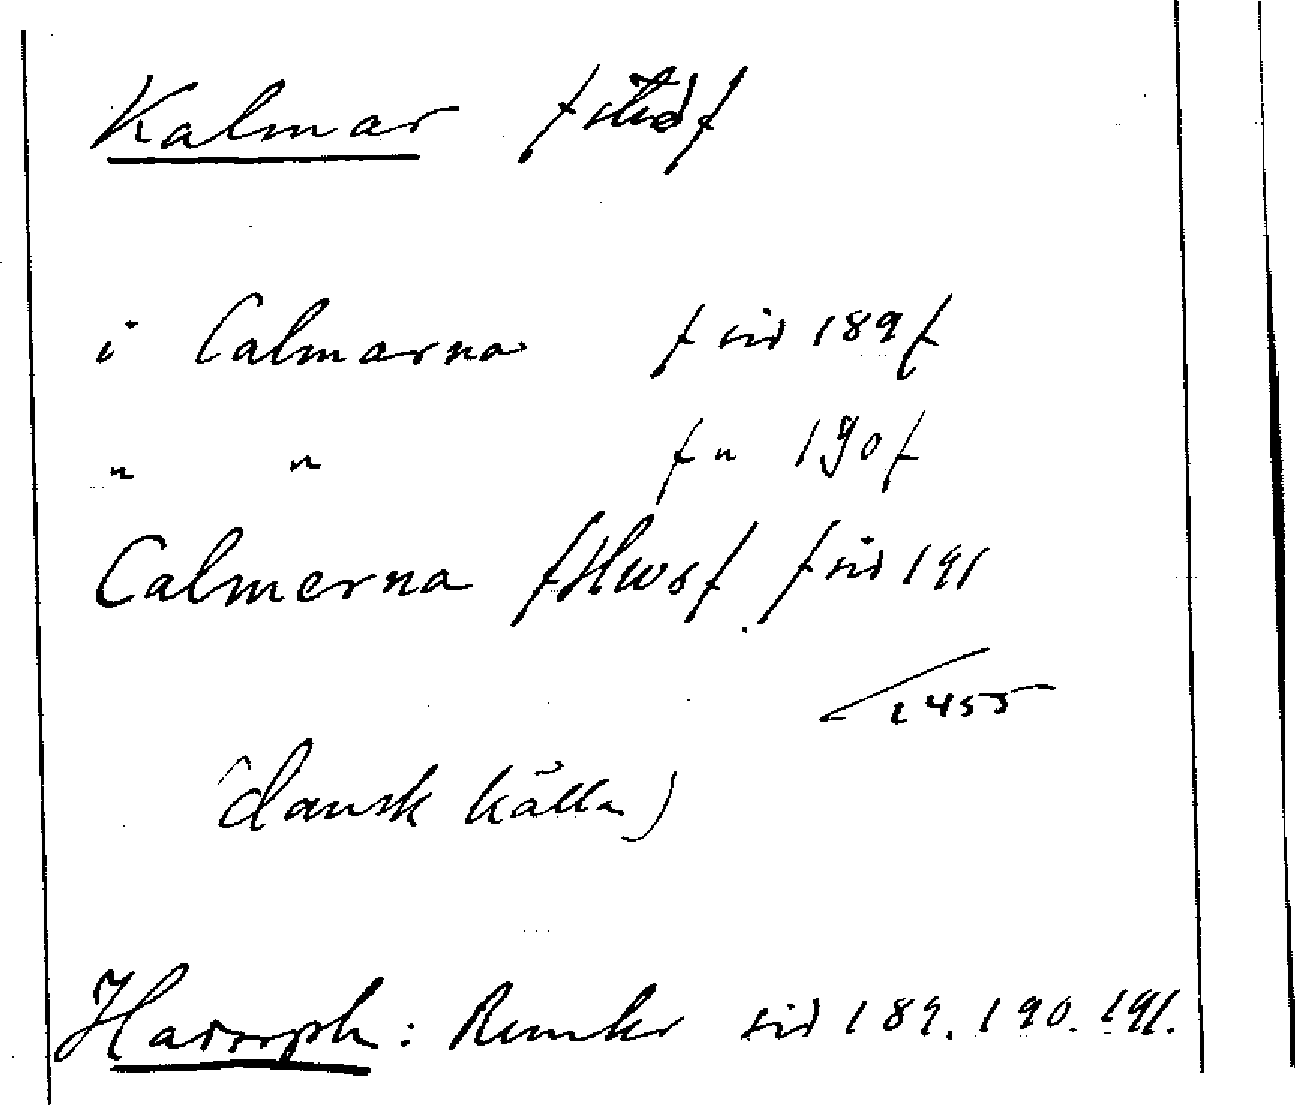 Kalmar /stad/
i Calmarna /sid 189/
" " /" 190/
Calmerna /Hws/ /sid 191
1455
(dansk källa)
Hadorph: Rimkr sid 189. 190. 191.